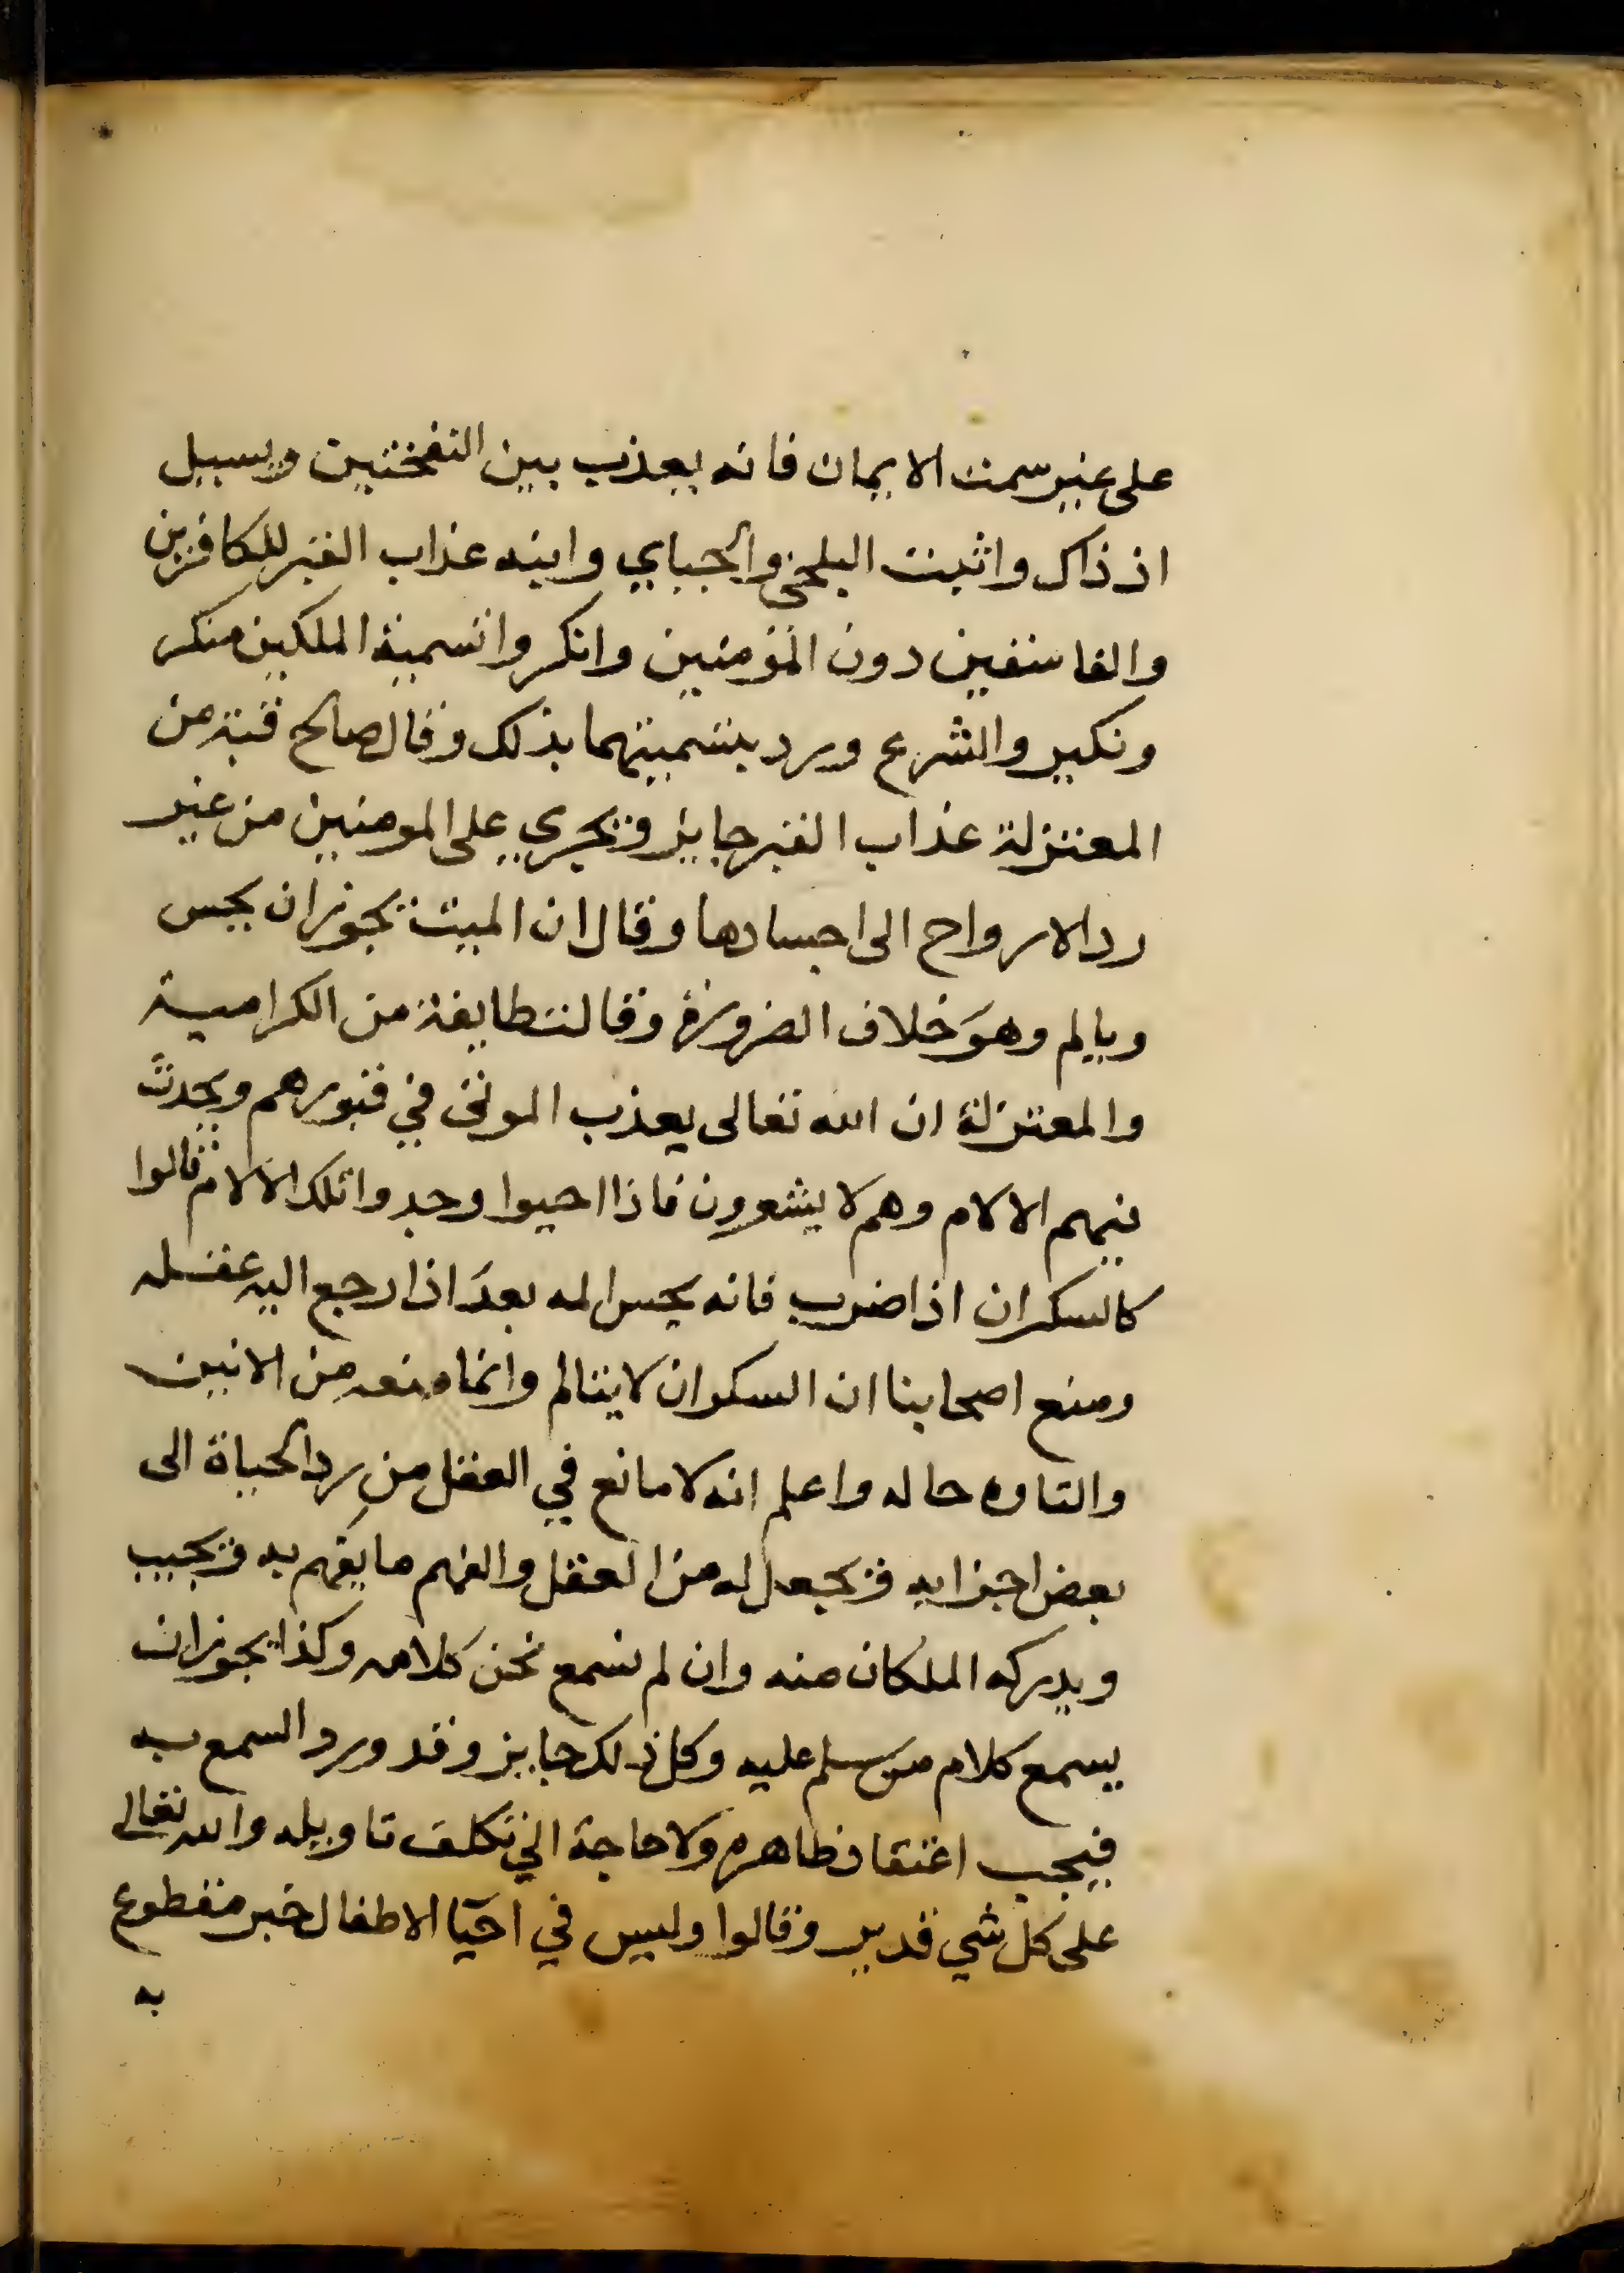 على غير سمت الايمان فانه يعذب بين النفختين ويسيل
اذ ذاك واثبت البلخي والجباي وابنه عذاب القبر للكافرين
والفاسقين دون المؤمنين وانكروا تسمية الملكين منكر
ونكير والشرع ورد بتسميتهما بذلك وقال صالح قبة من
المعتزلة عذاب القبر جايز ويجري على المومنين من غير
رد الارواح الى اجسادها وقال ان الميت يجوز ان يحس
ويالم وهو خلاف الضرورة وقالت طايفة من الكرامية
والمعتزلة ان الله تعالى يعذب الموتى في قبورهم ويحدث
فيهم الالام وهم لا يشعرون فاذا احيوا وجدوا تلك الالام قالوا
كالسكران اذا ضرب فانه يحس المه بعد اذا رجع اليه عقله
ومنع اصحابنا ان السكران لا يتالم وانما منعه من الانين
والتاوه حاله واعلم انه لا مانع في العقل من رد الحياة الى
بعض اجزايه ويجعل له من العقل والفهم ما يفهم به ويجيب
ويدركه الملكان منه وان لم نسمع نحن كلامه وكذا يجوز ان
يسمع كلام من سلم عليه وكل ذلك جايز وقد ورد السمع به
فيجب اعتقاد ظاهره ولا حاجة الي تكلف تاويله والله تعالى
على كل شي قدير وقالوا وليس في احيا الاطفال خبر مقطوع
به